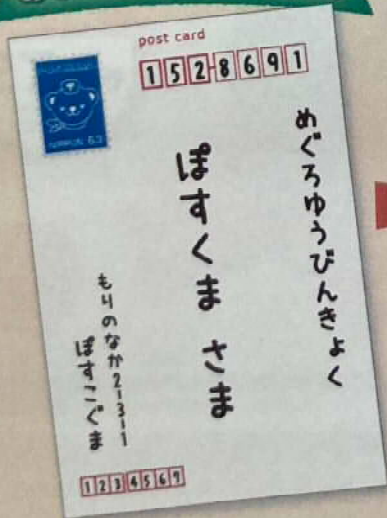 post card
152-8691
NIPPON 63
めぐろゆうびんきょく
ぽすくま さま
もりのなか2-3-1
ぽすこぐま
1234567